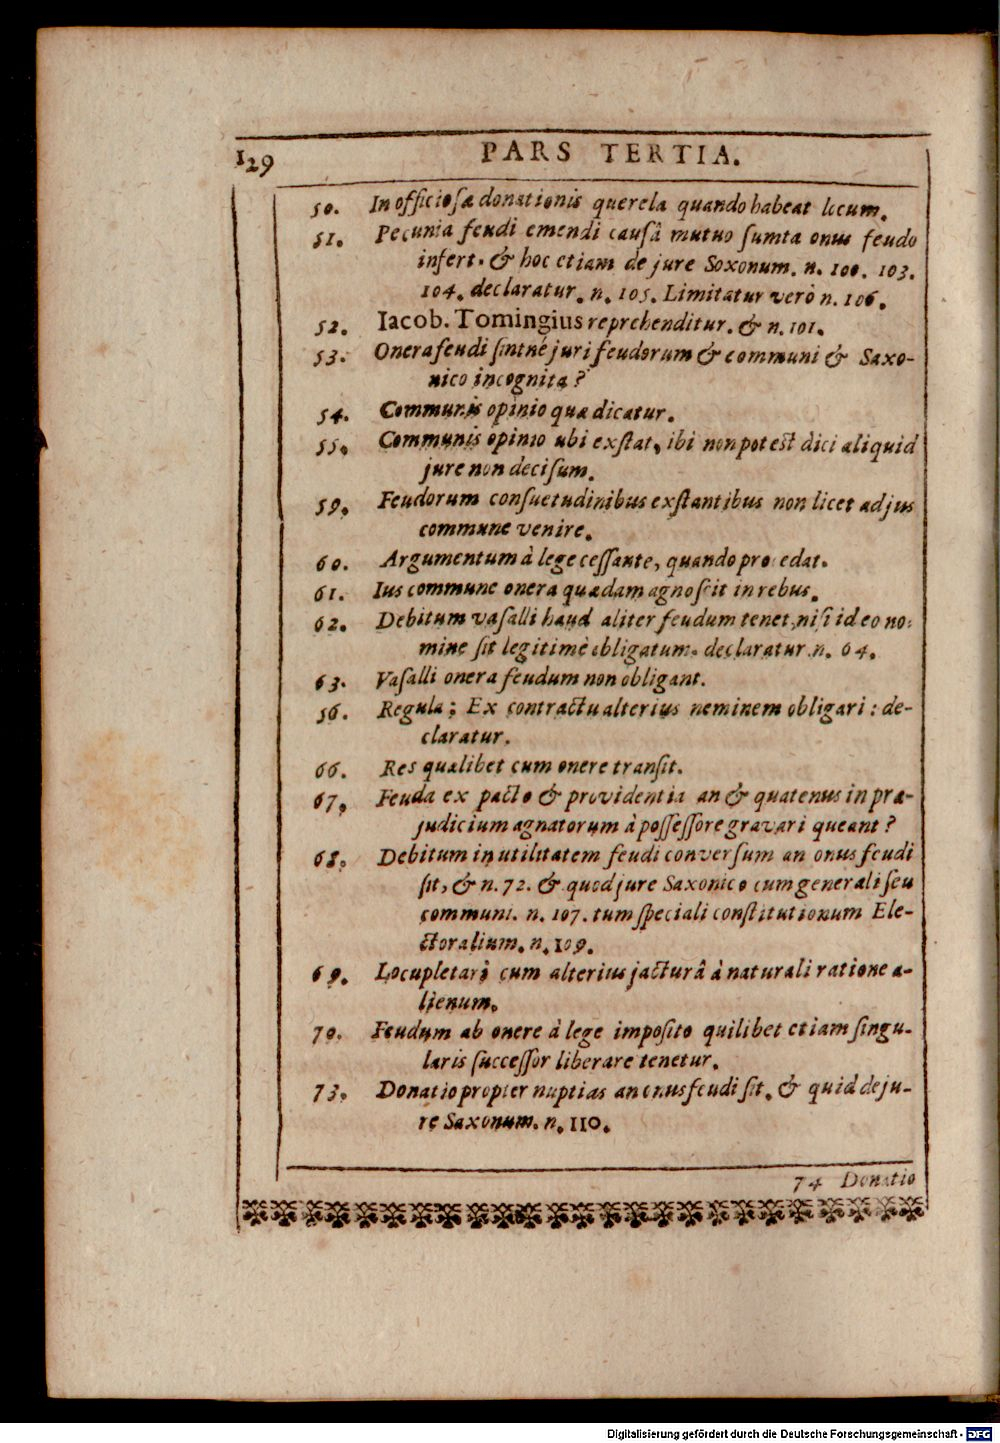 129 PARS TERTIA.
50. Inofficiosæ donationis querela quando habeat locum.
51. Pecunia feudi emendi causâ mutuo sumta onus feudo
infert. & hoc etiam de jure Soxonum. n. 100. 103.
104. declaratur. n. 105. Limitatur verò n. 106.
52. Iacob. Tomingius reprehenditur. & n. 101.
53. Onera feudi sintné juri feudorum & communi & Saxo-
nico incognita?
54. Communis opinio quæ dicatur.
55. Communis opinio ubi exstat, ibi non potest dici aliquid
jure non decisum.
59. Feudorum consuetudinibus exstantibus non licet ad jus
commune venire.
60. Argumentum à lege cessante, quando pro edat.
61. Ius commune onera quædam agnoscit in rebus.
62. Debitum vasalli haud aliter feudum tenet, nisi id eo no-
mine sit legitimè obligatum. declaratur n. 64.
63. Vasalli onera feudum non obligant.
56. Regula; Ex contractu alterius neminem obligari: de-
claratur.
66. Res quælibet cum onere transit.
67. Feuda ex pacto & providentia an & quatenus in præ-
judicium agnatorum à possessore gravari queant?
68. Debitum in utilitatem feudi conversum an onus feudi
sit, & n. 72. & quod jure Saxonico cum generali seu
communi. n. 107. tum speciali constitutionum Ele-
ctoralium. n. 109.
69. Locupletari cum alterius jacturâ à naturali ratione a-
lienum.
70. Feudum ab onere à lege imposito quilibet etiam singu-
laris successor liberare tenetur.
73. Donatio propter nuptias an onus feudi sit. & quid de ju-
re Saxonum. n. 110.
74 Donatio
Digitalisierung gefördert durch die Deutsche Forschungsgemeinschaft - DFG